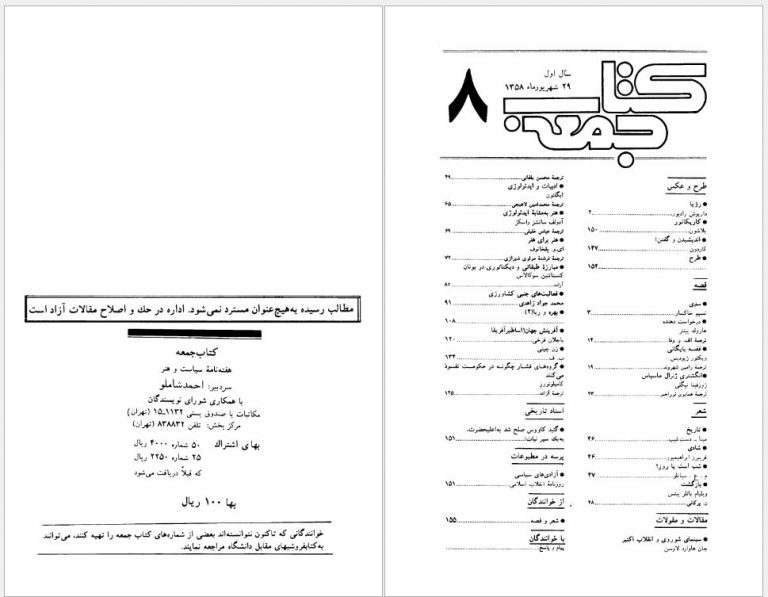 کتاب جمعه
سال اول
۲۹ شهریورماه ۱۳۵۸
۸
طرح و عکس
● رؤیا
داریوش رادپور ... ۲
● کاریکاتور
بلاشون ... ۱۵۰
● اندیشیدن و گفتن!
کاردون ... ۱۴۷
● طرح
... ۱۵۴
قصه
نسیم خاکسار ... ۳
● درخواست دهنده
هارولد پینتر
ترجمهٔ الف. و. وفا ... ۱۴
● قفسه بایگانی
ترجمهٔ رامین شهروند ... ۱۹
● انگشتری ژنرال ماسیاس
ژوزفینا نیگلی
ترجمهٔ همایون نوراحمر ... ۲۳
شعر
● تاریخ
● شادی
● شب است یا روز؟
م. ع. سپانلو ... ۴۷
● بازگشت
ویلیام باتلر ییتس
مقالات و مقولات
● سینمای شوروی و انقلاب اکتبر
جان هاوارد لاوسن
ترجمهٔ محسن یلفانی ... ۴۹
● ادبیات و ایدئولوژی
ایگلتون
ترجمهٔ محمدامین لاهیجی ... ۶۵
● هنر به‌مثابهٔ ایدئولوژی
آدولف سانشز واسکز
ترجمهٔ عباس خلیلی ... ۶۹
● هنر برای هنر
ترجمهٔ فرشتهٔ مولوی شیرازی ... ۷۲
● مبارزهٔ طبقاتی و دیکتاتوری در یونان
کنستانتین سوکالاس
آزاده ... ۸۲
● فعالیت‌های جنبی کشاورزی
محمد جواد زاهدی ... ۹۱
● بهره و ربا(۲)
... ۱۰۸
● آفرینش جهان(اساطیرآفریقا
باجلان فرخی ... ۱۲۰
● زن چینی
ب. ف. ... ۱۳۴
● گروه‌های فشار چگونه در حکومت نفوذ
می‌کنند
ترجمهٔ آزاده ... ۱۴۵
اسناد تاریخی
● گنبد کاووس صلح شد به‌اعلیحضرت.
پرسه در مطبوعات
● آزادی‌های سیاسی
روزنامهٔ انقلاب اسلامی ... ۱۵۱
از خوانندگان
● شعر و قصه ... ۱۵۵
با خوانندگان
پیام و پاسخ
مطالب رسیده به‌هیچ‌عنوان مسترد نمی‌شود. اداره در حك و اصلاح مقالات آزاد است
کتاب‌جمعه
هفته‌نامهٔ سیاست و هنر
سردبیر: احمدشاملو
با همکاری شورای نویسندگان
مکاتبات با صندوق پستی ۱۱۳۲ـ۱۵ (تهران)
مرکز پخش: تلفن ۸۳۸۸۳۲ (تهران)
بهای اشتراك ۵۰ شماره ۴۰۰۰ ریال
۲۵ شماره ۲۲۵۰ ریال
که قبلاً دریافت می‌شود
بها ۱۰۰ ریال
خوانندگانی که تاکنون نتوانسته‌اند بعضی از شماره‌های کتاب جمعه را تهیه کنند، می‌توانند
به‌کتابفروشیهای مقابل دانشگاه مراجعه نمایند.